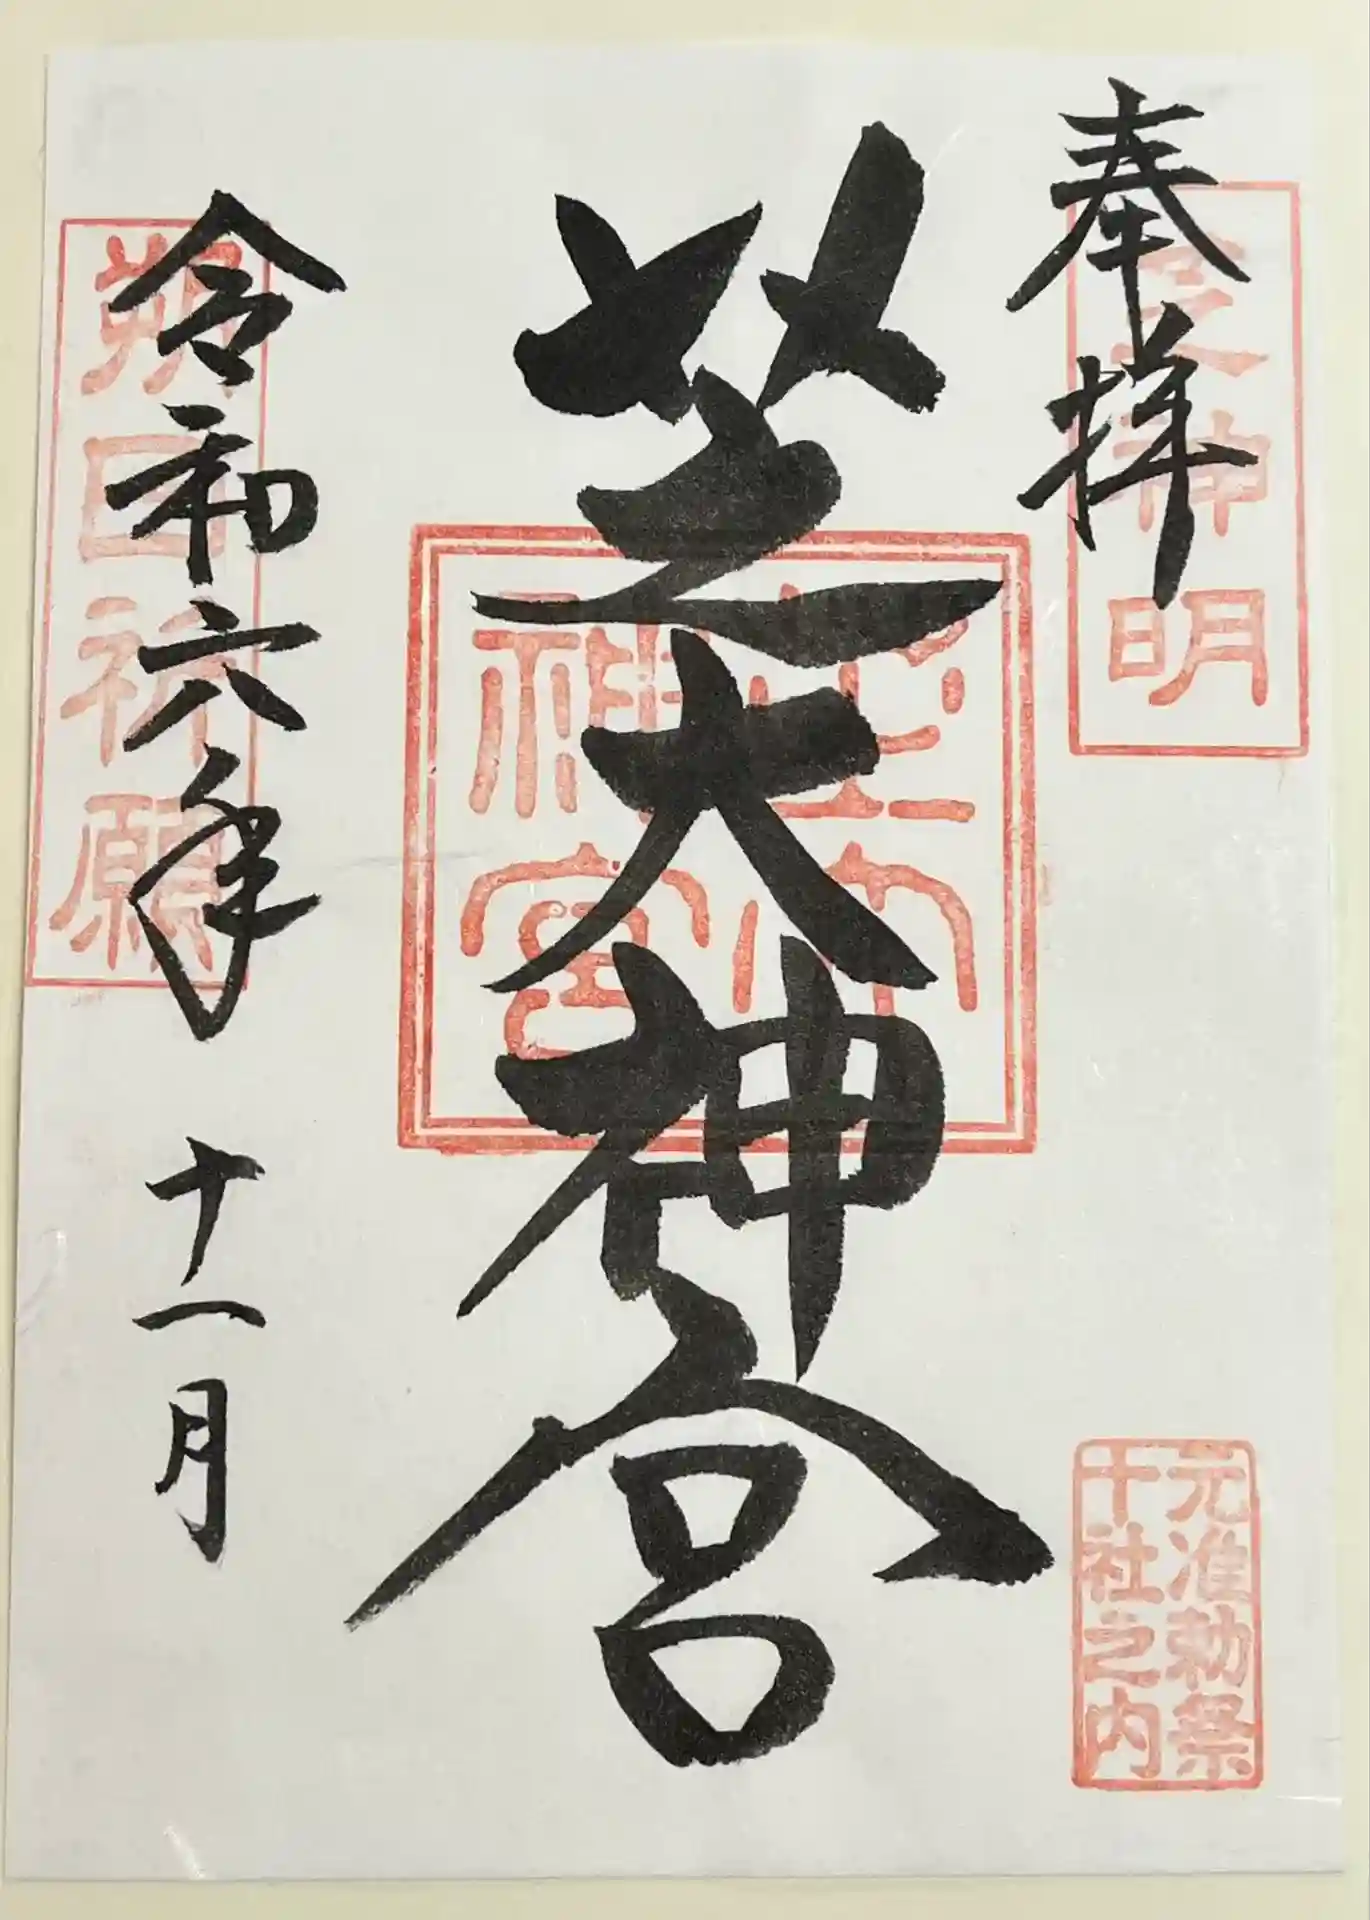 奉拝
神明
元准勅祭
十社之内
芝大神宮
神宮
令和六年 十一月
朔日祈願